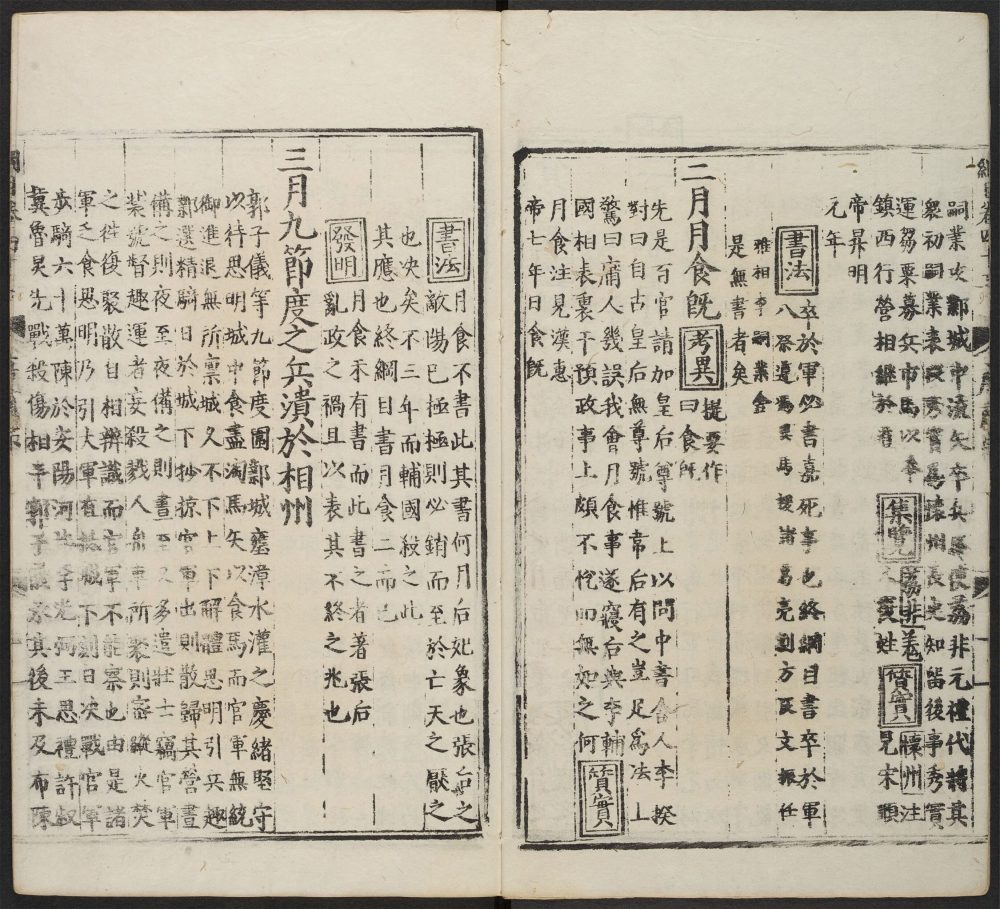 嗣業攻鄴城中流矢卒兵馬使荔非元禮代將其
衆初嗣業表段秀實爲懷州長史知留後事秀實
運芻粟募兵市馬以奉
鎮西行營相繼於道 集覽 荔非 姓 質實 懷州注見宋順
帝昇明
元年
書法 卒於軍必書嘉死事也終綱目書卒於軍
八 祭遵馮異馬援諸葛亮劉方長文振任
雅相李嗣業 舍
是無書者矣
二月月食旣 考異 提要作
曰食旣
先是百官請加皇后尊號上以問中書舍人李揆
對曰自古皇后無尊號惟韋后有之豈足爲法上
驚曰庸人幾誤我會月食事遂寢后與李輔
國相表裏干預政事上頗不悅而無如之何 質實
月食注見漢惠
帝七年日食旣
書法 月食不書此其書何月后妃象也張后之
敵陽已極則必銷而至於亡天之厭之
也决矣不三年而輔國殺之此
其應也終綱目書月食二而已
發明 月食未有書而此書之者著張后
亂政之禍且以表其不終之兆也
三月九節度之兵潰於相州
郭子儀等九節度圍鄴城壅漳水灌之慶緒堅守
以待思明城中食盡淘馬矢以食馬而官軍無統
御進退無所禀城久不下上下解體思明引兵趣
鄴選精騎日於城下抄掠官軍出則散歸其營晝
備之則夜至夜備之則晝至又多遣壯士竊官軍
裝號督趣運者妄殺戮人舟車所聚則密縱火焚
之往復聚散自相辨識而官軍不能察也由是諸
軍乏食思明乃引大軍直抵城下刻日决戰官軍
步騎六十萬陳於安陽河北李光弼王思禮許叔
冀魯炅先戰殺傷相半郭子儀承其後未及布陳